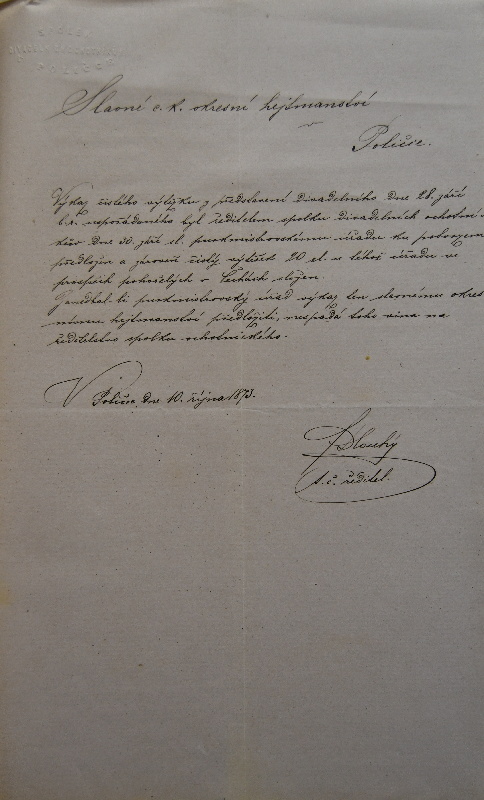 Slavné c. k. okresní hejtmanství
Poličce.
Výkaz čistého výtěžku z představení divadelního dne 28. září
t. r. uspořádaného byl ředitelem spolku divadelních ochotní-
ků dne 30. září sl. purkmistrovskému úřadu ku
předložen a zároveň čistý výtěžek 20 zl. u téhož úřadu ve
prospěch pohořelých v Čechách složen.
Zanedbal-li purkmistrovský úřad výkaz ten slavnému okres-
nímu hejtmanství předložiti, nespadá toho vina na
ředitelstvo spolku ochotnického.
V Poličce, dne 10. října 1873.
Dlouhý
t. č. ředitel.